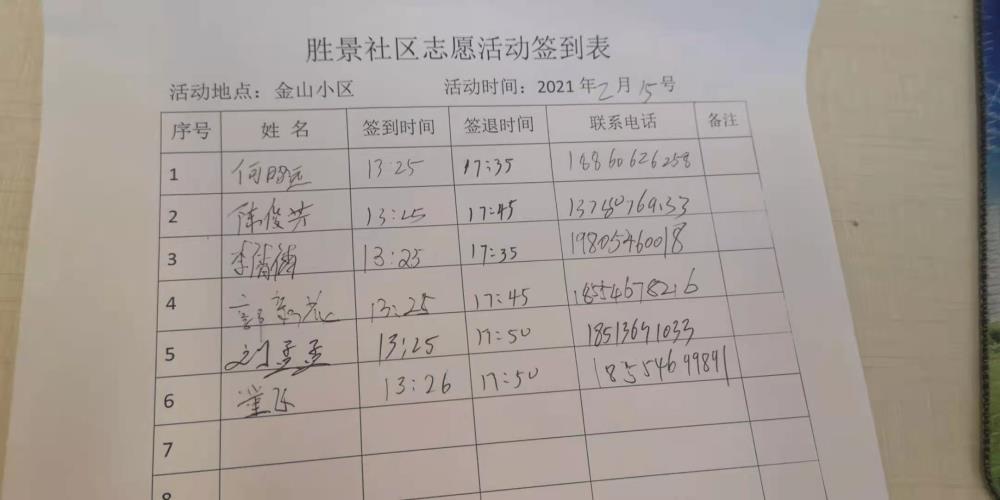 胜景社区志愿活动签到表
活动地点：金山小区 活动时间：2021年2月15号
序号 姓名 签到时间 签退时间 联系电话 备注
1 何明远 13:25 17:35 18860626258
2 陈俊芳 13:25 17:45 13780769133
3 李 13:25 17:35 19805460018
4 郭 13:25 17:45 18554678216
5 刘孟孟 13:25 17:50 18513691033
6 13:26 17:50 18554699891
7
8